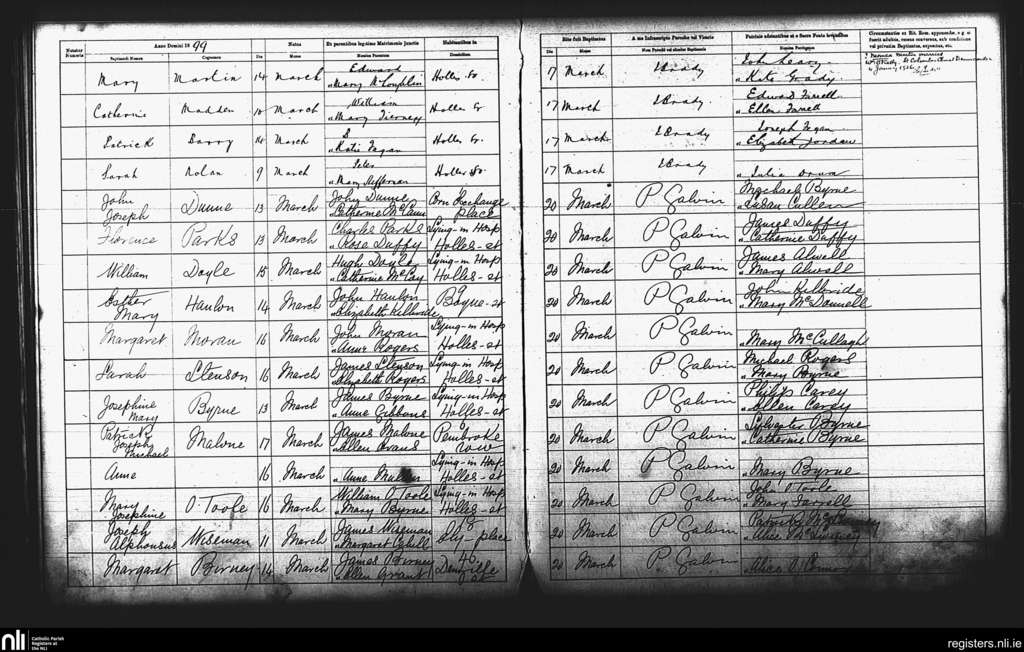 Anno Domini 1899
Natus
Et parentibus legitimo Matrimonio Junctis
Habitantibus in
Rite fuit Baptizatus
A me Infrascripto Parocho vel Vicario
Patrinis adstantibus et e Sacro Fonte levantibus
Numerus
Cognomen
Die
Mense
Nomina Parentum
Domicilium
Die
Mense
Mary Martin 14 March Edward „ Mary McLoughlin Holles St. 17 March L Brady John Leary „ Kate Grady
Catherine Madden 10 March William „ Mary Tierney Holles St 17 March L Brady Edward Farrell „ Ellen Farrell
Patrick Barry 14 March „ Kate Fagan Holles St. 17 March L Brady Joseph Fagan „ Elizabeth Jordan
Sarah Nolan 9 March Peter „ Mary Heffernan Holles St. 17 March L Brady „ Julia
John Joseph Dunne 13 March John Dunne „ Catherine McCann Corn Exchange place 20 March P Galvin Michael Byrne „ Susan Cullen
Florence Parks 13 March Charles Parks „ Rose Duffy Lying-in Hosp Holles-st 20 March P Galvin James Duffy „ Catherine Duffy
William Doyle 15 March Hugh Doyle „ Catherine McCoy Lying-in Hosp Holles-st 20 March P Galvin James Alwell „ Mary Alwell
Esther Mary Hanlon 14 March John Hanlon „ Elizabeth Kilbride 9 Boyne-st 20 March P Galvin John Kilbride „ Mary McDonnell
Margaret Moran 16 March John Moran „ Anne Rogers Lying-in Hosp Holles-st 20 March P Galvin „ Mary McCullagh
Sarah Stenson 16 March James Stenson „ Elizabeth Rogers Lying-in Hosp Holles-st 20 March P Galvin Michael Rogers „ Mary Byrne
Josephine Mary Byrne 13 March James Byrne „ Anne Gibbons Lying-in Hosp Holles-st 20 March P Galvin Philip Carey „ Ellen Carey
Patrick Joseph Michael Malone 17 March James Malone „ Ellen Evans Pembroke row 20 March P Galvin Sylvester Byrne „ Catherine Byrne
Anne 16 March „ Anne Lying-in Hosp Holles-st 20 March P Galvin „ Mary Byrne
Mary Josephine O'Toole 16 March William O'Toole „ Mary Byrne Lying-in Hosp Holles-st 20 March P Galvin John O'Toole „ Mary Farrell
Joseph Alphonsus Wiseman 11 March James Wiseman „ Margaret Cahill 8 Ely-place 20 March P Galvin „ Alice
Margaret Birney 14 March James Birney „ Ellen Grant 46 Denzille st 20 March P Galvin „ Alice O'Connor
nli
Catholic Parish
Registers at
the NLI
registers.nli.ie